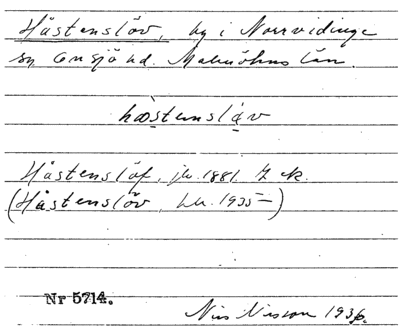 Håstenslöv, by i Norrvidinge
sn Onsjö hd. Malmöhus län.
hå̱stɐnslạv
Håstenslöf, jb. 1881.
(Håstenslöv, hk. 1935 –)
Nr 5714.
Nils Nilsson 1936.